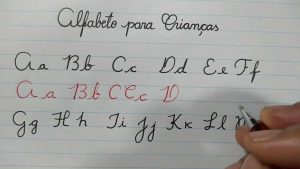 Alfabeto para Crianças
Aa Bb Cc Dd Ee Ff
Aa Bb CCc D
Gg Hh Ii Jj Kk Ll